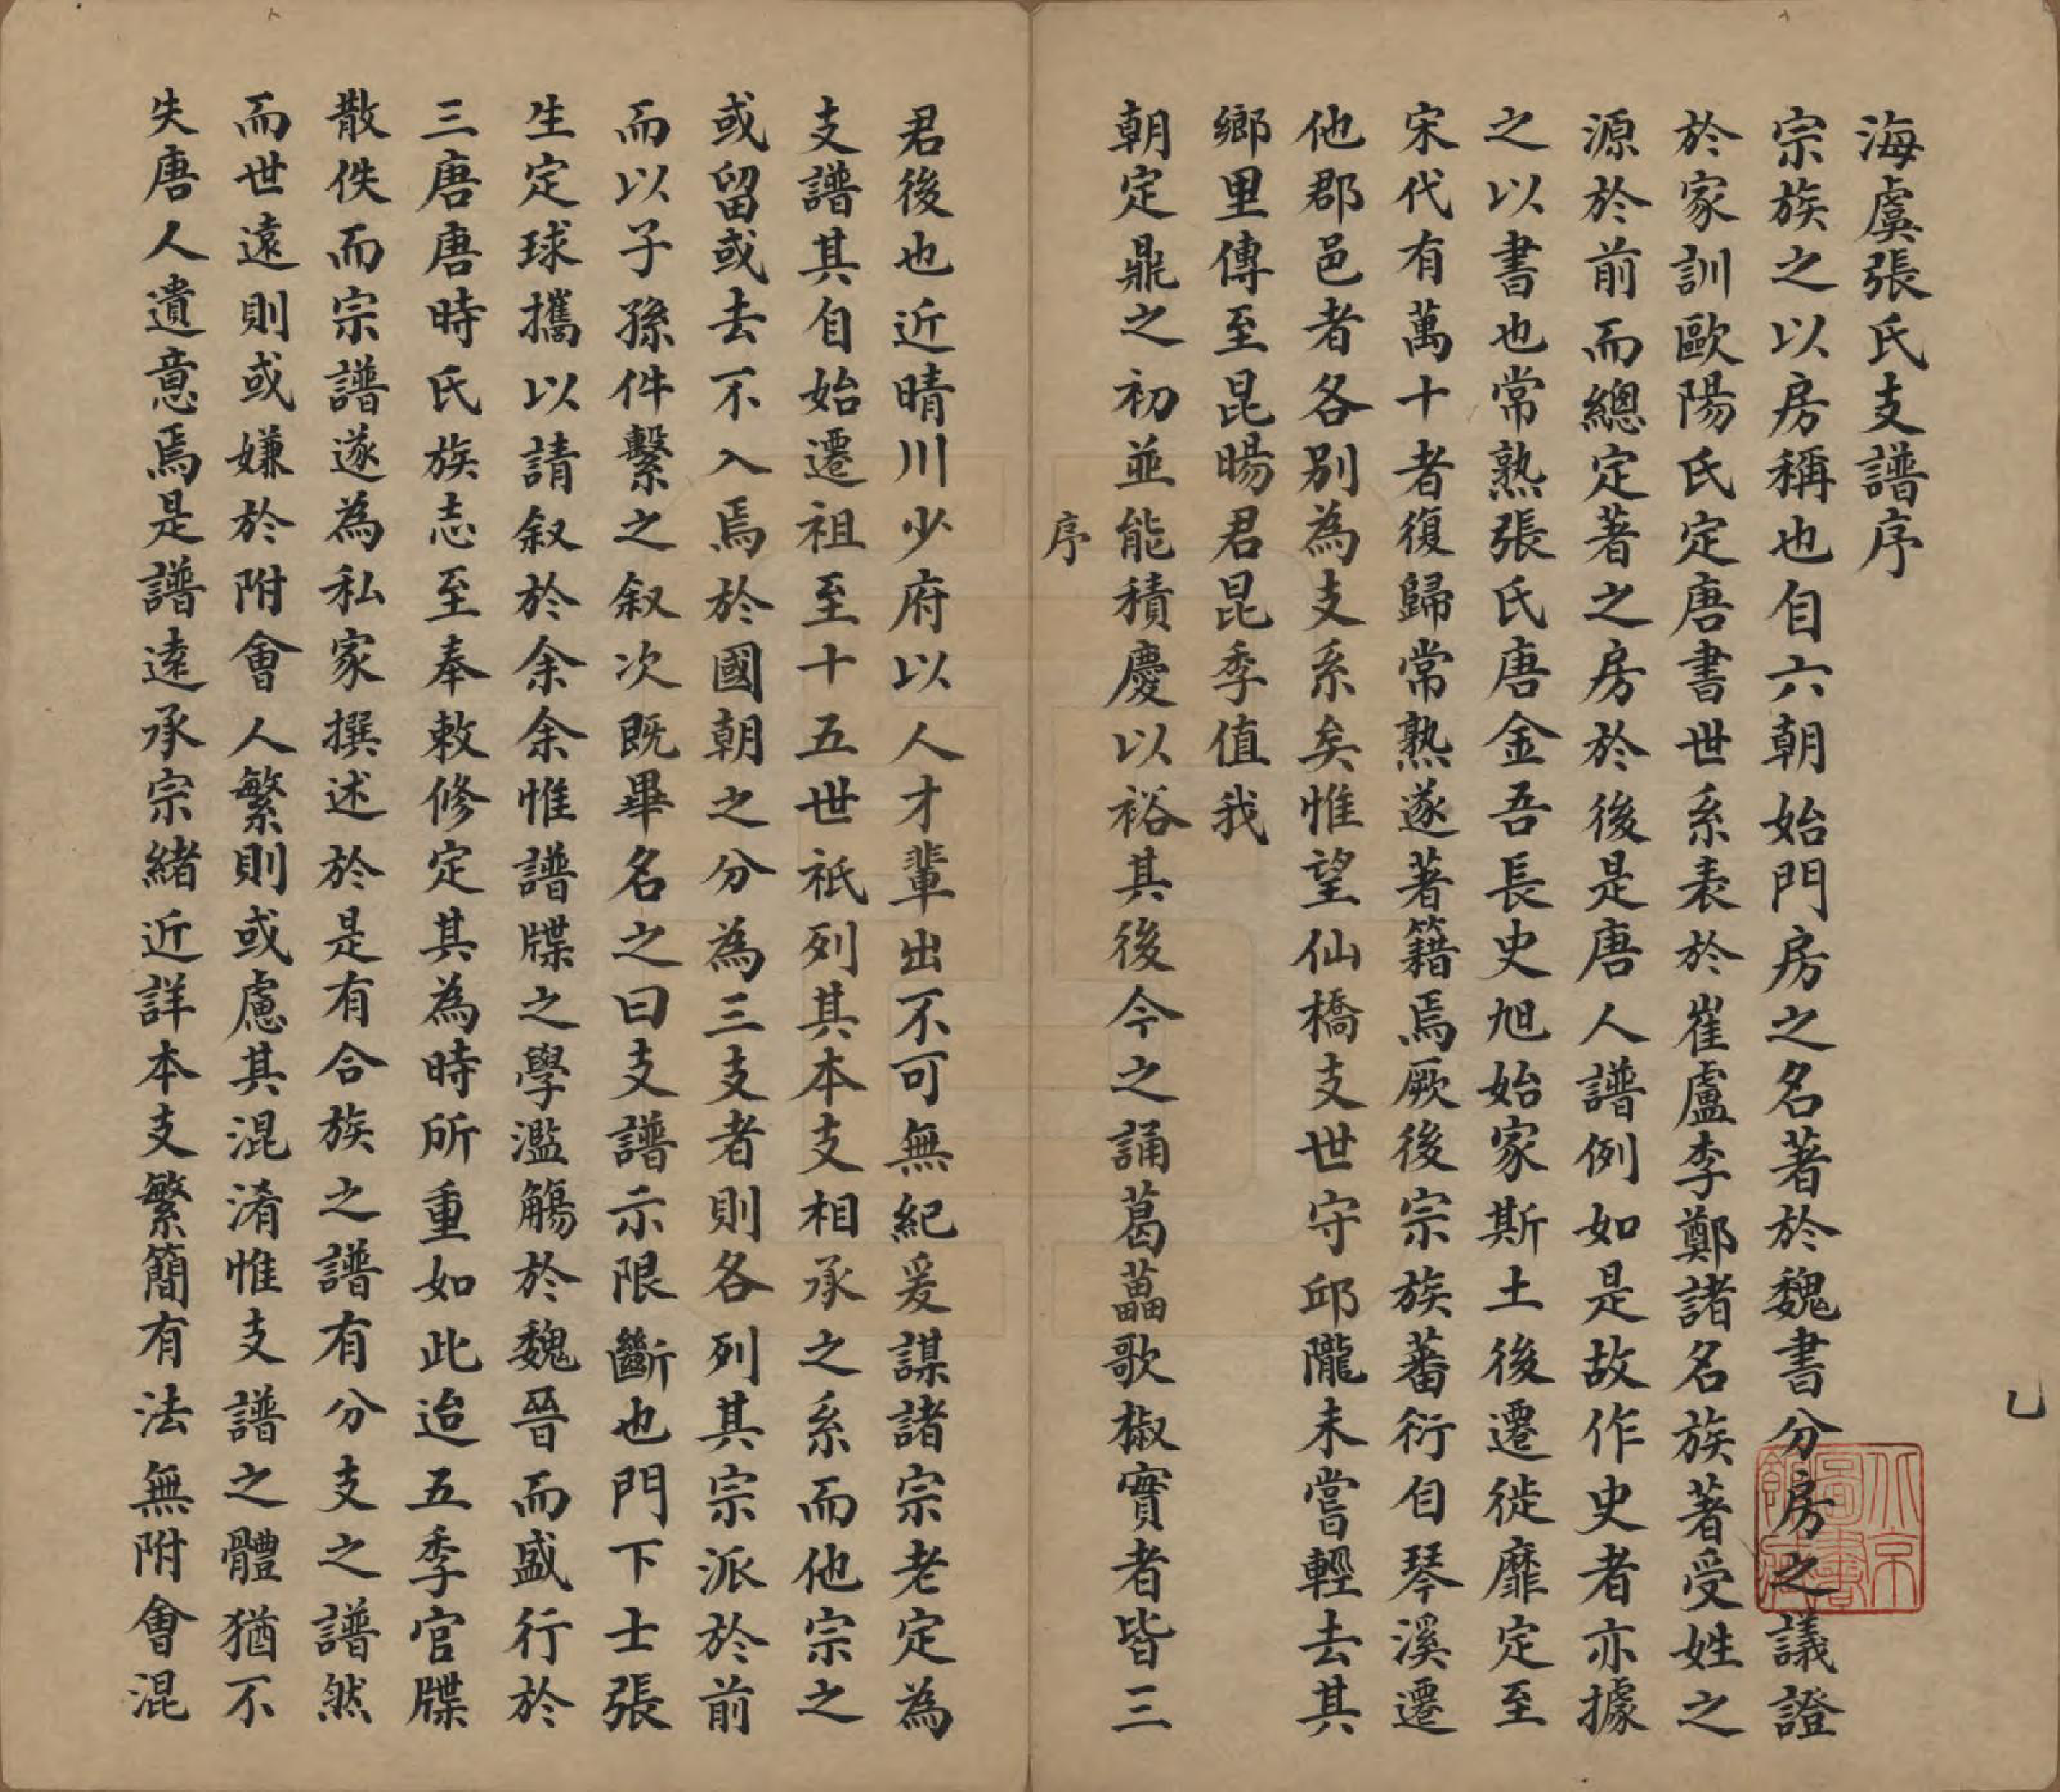 海虞張氏支譜序
宗族之以房稱也自六朝始門房之名著於魏書分房之議證
於家訓歐陽氏定唐書世系表於崔盧李鄭諸名族著受姓之
源於前而總定著之房於後是唐人譜例如是故作史者亦據
之以書也常熟張氏唐金吾長史旭始家斯土後遷徙靡定至
宋代有萬十者復歸常熟遂著籍焉厥後宗族蕃衍自琴溪遷
他郡邑者各別為支系矣惟望仙橋支世守邱隴未嘗輕去其
鄉里傳至昆暘君昆季值我
朝定鼎之初並能積慶以裕其後今之誦葛藟歌椒實者皆三
序
君後也近晴川少府以人才輩出不可無紀爰謀諸宗老定為
支譜其自始遷祖至十五世祇列其本支相承之系而他宗之
或留或去不入焉於國朝之分為三支者則各列其宗派於前
而以子孫件繫之叙次既畢名之曰支譜示限斷也門下士張
生定球攜以請叙於余余惟譜牒之學濫觴於魏晉而盛行於
三唐唐時氏族志至奉敕修定其為時所重如此迨五季官牒
散佚而宗譜遂為私家撰述於是有合族之譜有分支之譜然
而世遠則或嫌於附會人繁則或慮其混淆惟支譜之體猶不
失唐人遺意焉是譜遠承宗緒近詳本支繁簡有法無附會混